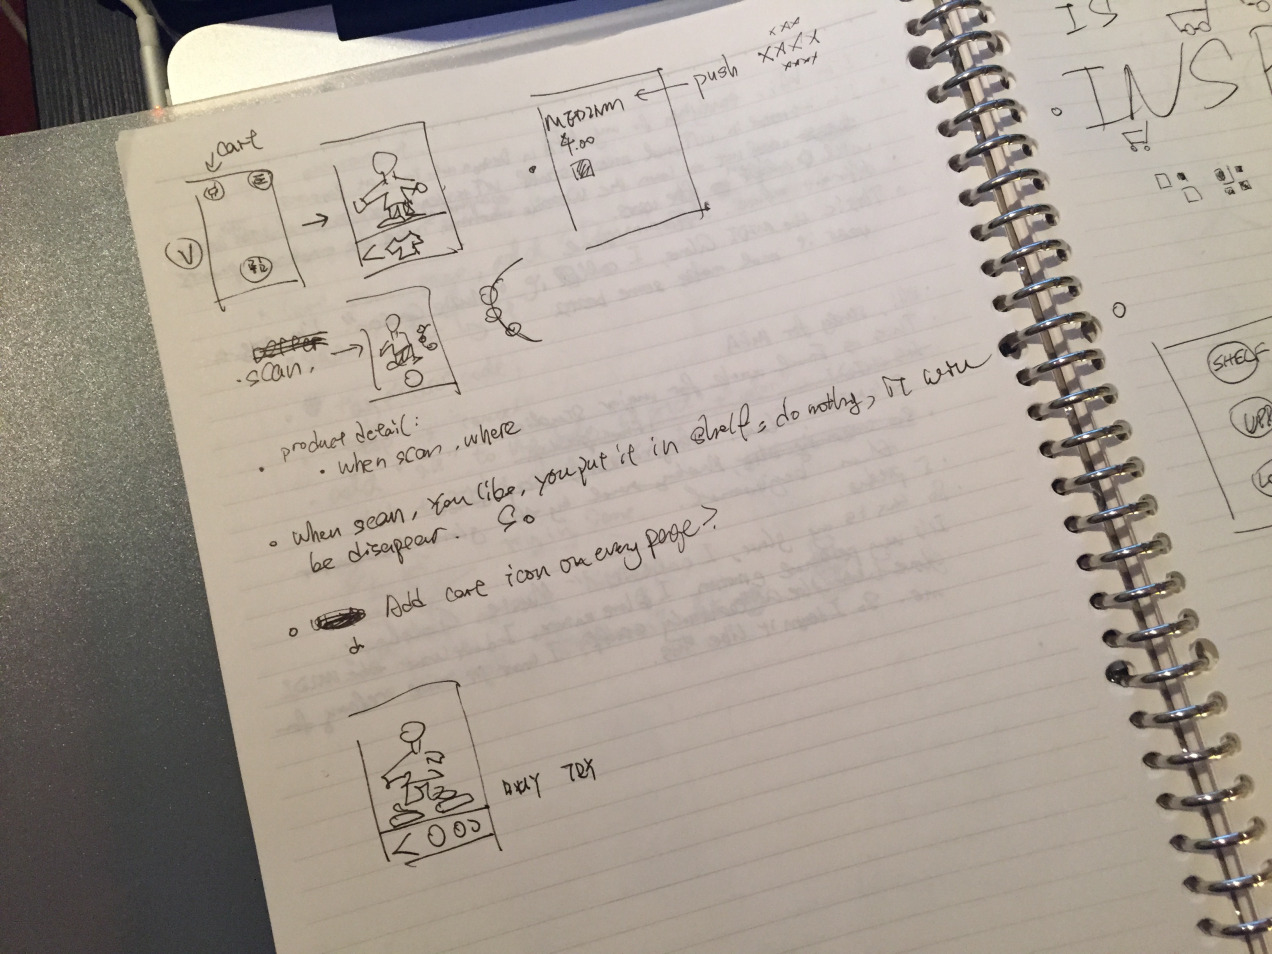 cart
push
xxx
xxxx
xxxx
4.00
V
scan.
product detail:
when scan, where
when scan, you like, you put it in shelf, do nothing, it will
be disapear. So
Add cart icon on every page?
TRY
IS
INSP
SHELF
UPP